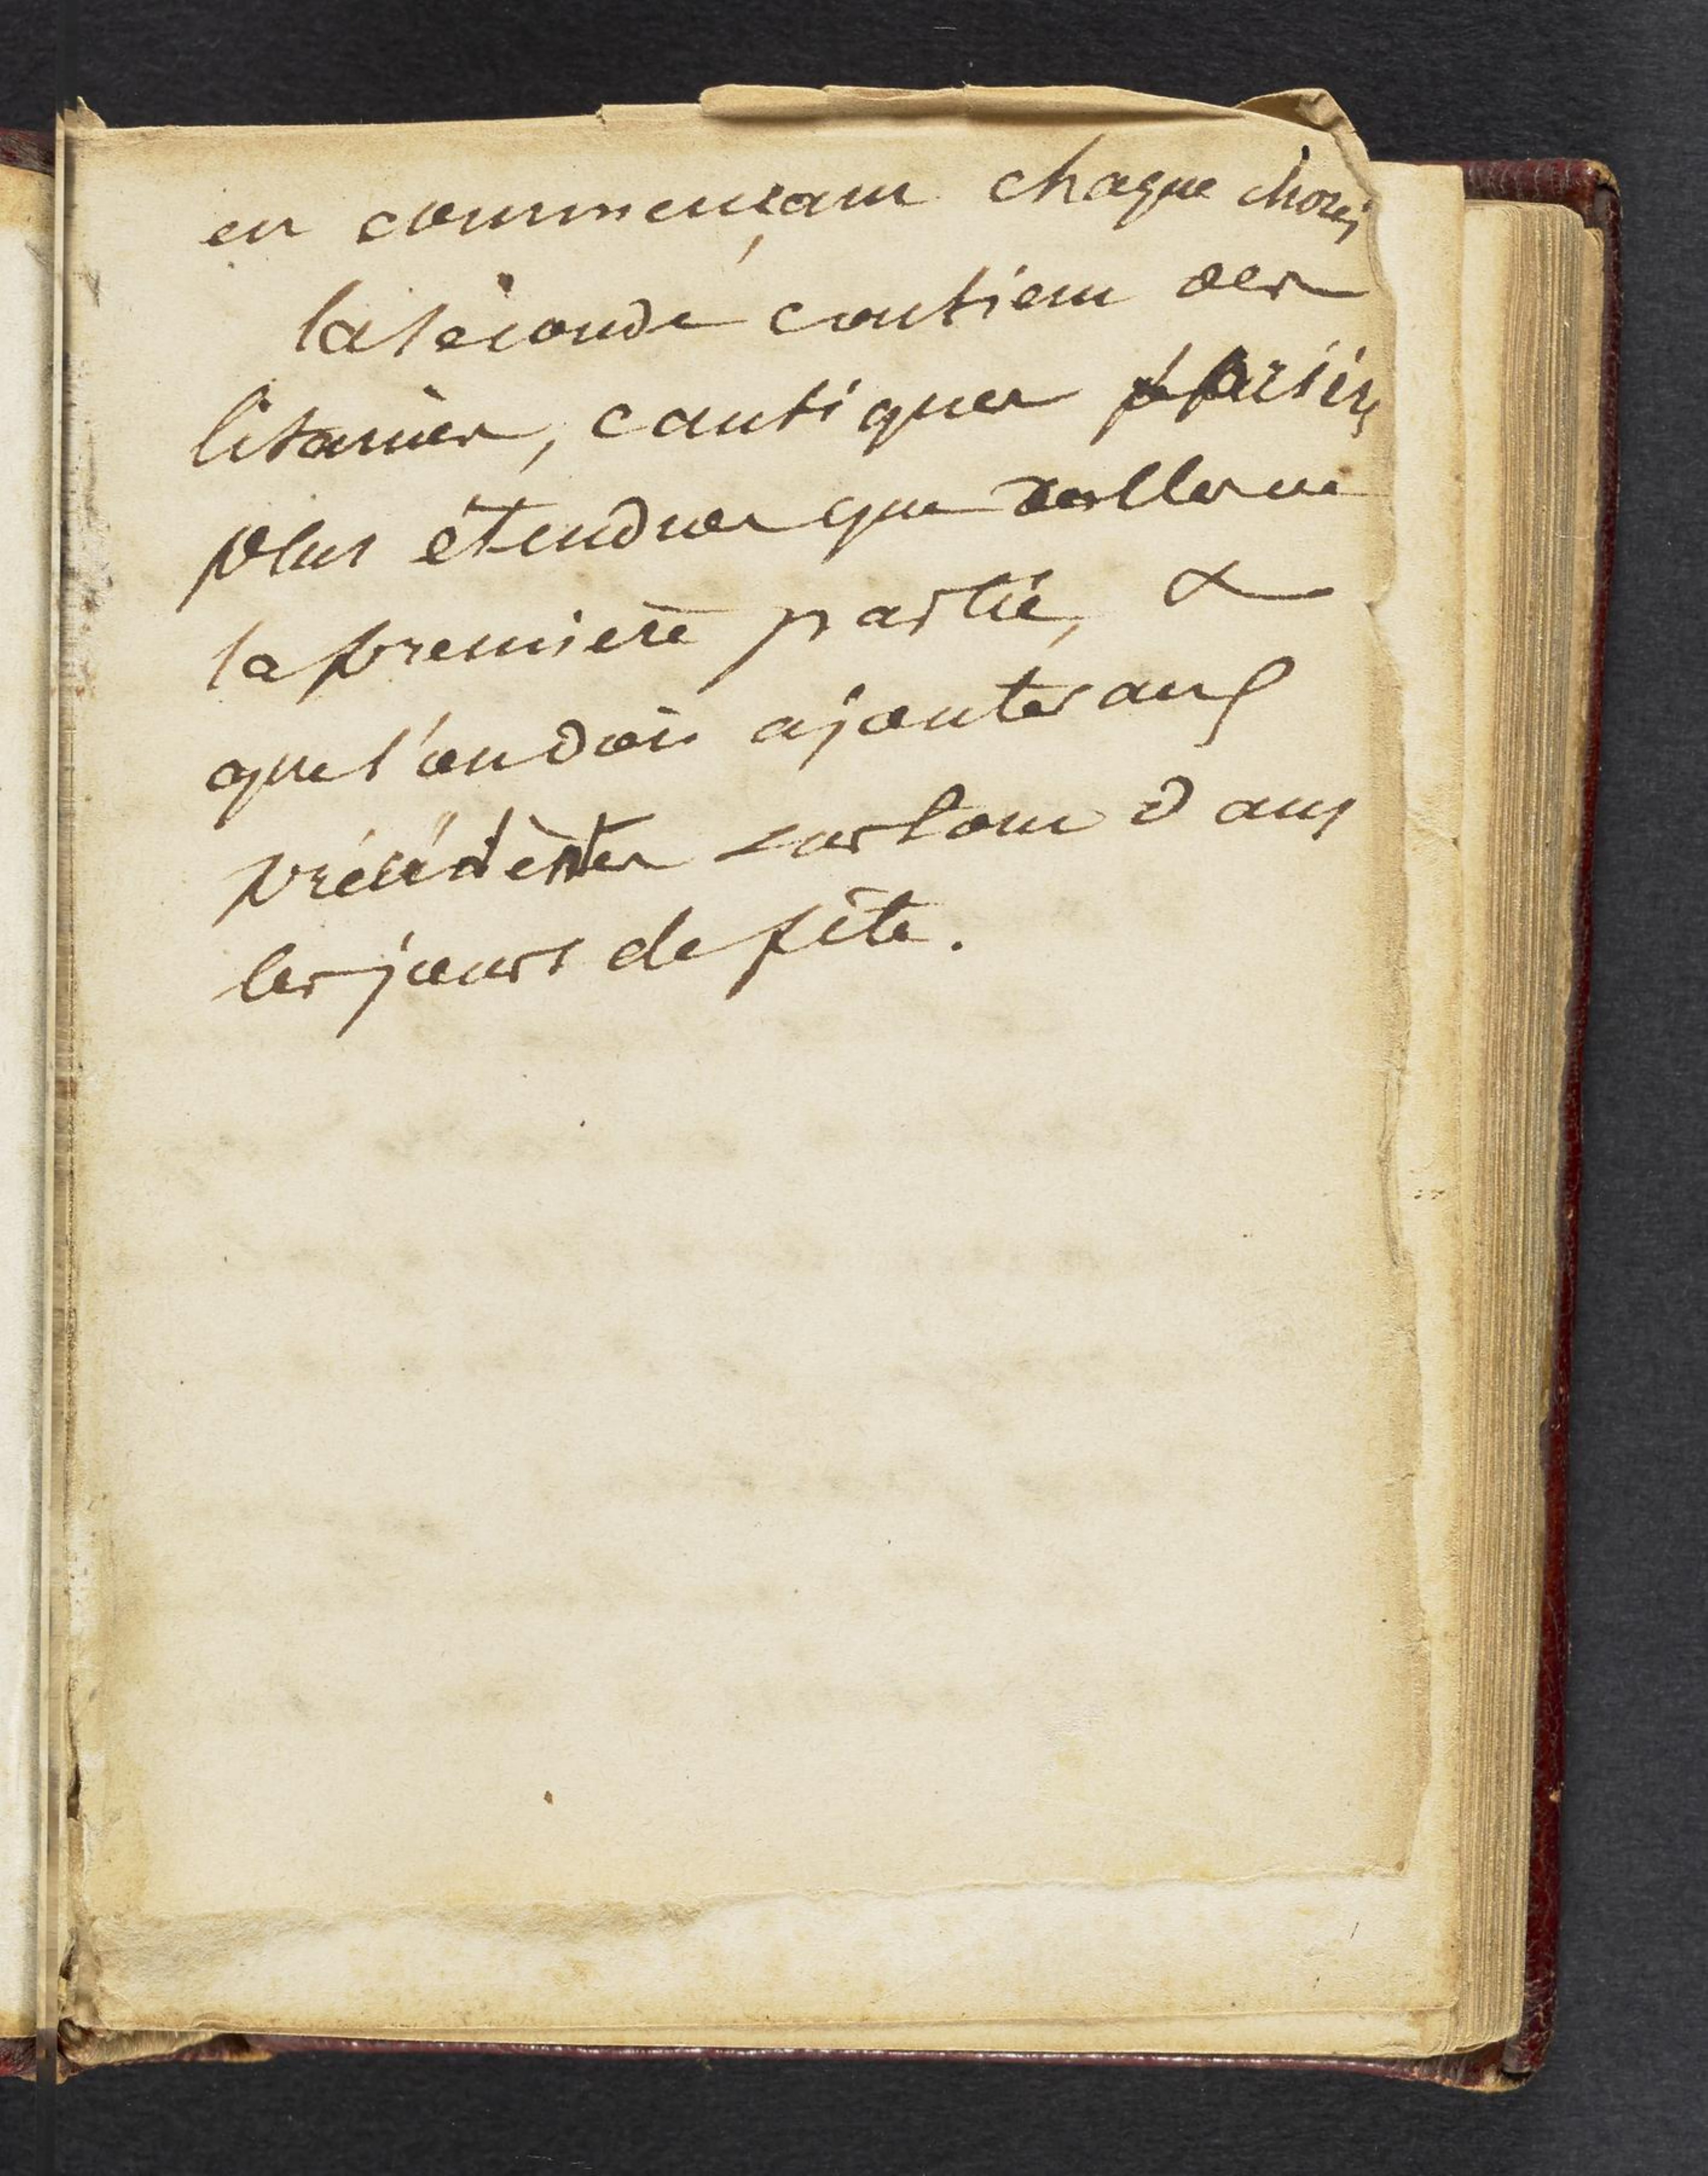 en commençant chaque chose,
la seconde contient des
litanies, cantiques prières
plus étendues que celles de
la première partie, &
que l'on doit ajouter aux
précédentes surtout dans
les jours de fête.